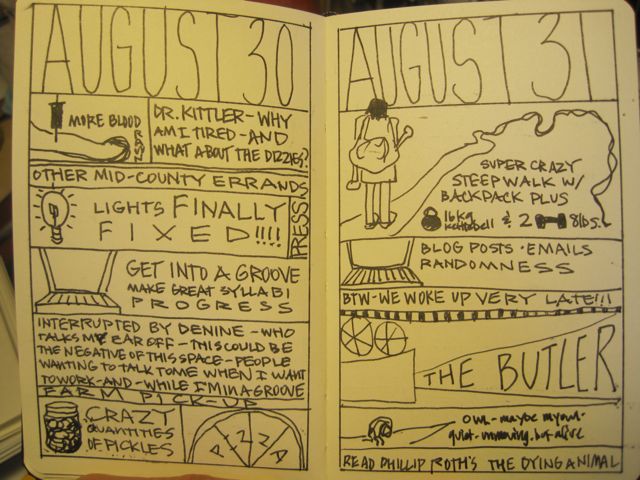 AUGUST 30
MORE BLOOD
DRAWN
DR. KITTLER - WHY
AM I TIRED - AND
WHAT ABOUT THE DIZZIES?
OTHER MID-COUNTY ERRANDS
LIGHTS FINALLY
FIXED!!!!
PRESSO
GET INTO A GROOVE
MAKE GREAT SYLLABI
PROGRESS
INTERRUPTED BY DENINE - WHO
TALKS MY EAR OFF - THIS COULD BE
THE NEGATIVE OF THIS SPACE - PEOPLE
WANTING TO TALK TO ME WHEN I WANT
TO WORK - AND - WHILE I'M IN A GROOVE
FARM PICK-UP
CRAZY
QUANTITIES
OF PICKLES
PIZZA
AUGUST 31
SUPER CRAZY
STEEP WALK W/
BACKPACK PLUS
16kg
kettlebell & 2 8lbs.
BLOG POSTS · EMAILS
RANDOMNESS
BTW - WE WOKE UP VERY LATE!!!
THE BUTLER
owl - maybe myowl -
quiet - unmoving, but alive
READ PHILLIP ROTH'S THE DYING ANIMAL